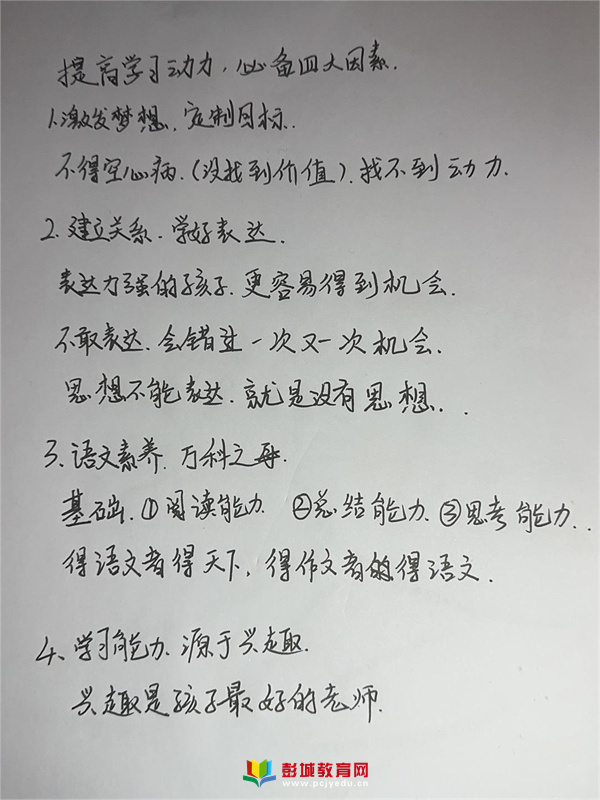 提高学习动力,必备四大因素.
1.激发梦想、定制目标.
不得空心病.(没找到价值).找不到动力.
2.建立关系.学好表达.
表达力强的孩子.更容易得到机会.
不敢表达.会错过一次又一次机会.
思想不能表达.就是没有思想..
3、语文素养.万科之母.
基础.①阅读能力 ②总结能力.③思考能力..
得语文者得天下,得作文者得语文.
4、学习能力.源于兴趣.
兴趣是孩子最好的老师.
彭城教育网
www.pcjyedu.cn